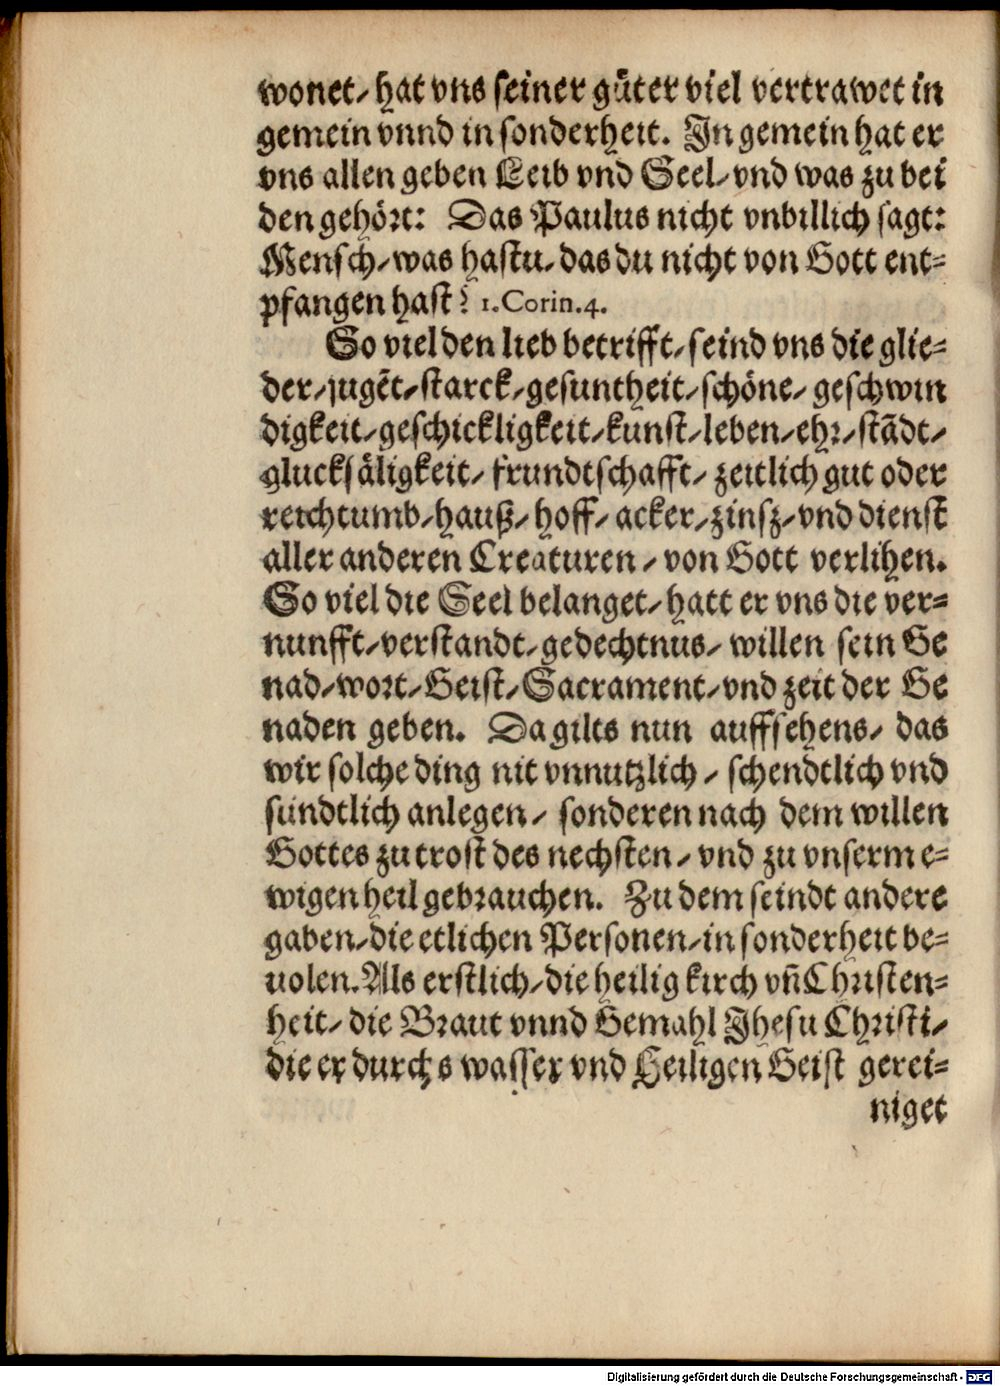 wonet/ hat vns seiner gůter viel vertrawet in
gemein vnnd in sonderheit. In gemein hat er
vns allen geben Leib vnd Seel/ vnd was zu bei
den gehört: Das Paulus nicht vnbillich sagt:
Mensch/ was hastu/ das du nicht von Gott ent=
pfangen hast? 1. Corin. 4.
So viel den lieb betrifft/ seind vns die glie=
der/ jugẽt/ starck/ gesuntheit/ schöne/ geschwin
digkeit/ geschickligkeit/ kunst/ leben/ ehr/ stãdt/
glucksäligkeit/ frundtschafft/ zeitlich gut oder
reichtumb/ hauß/ hoff/ acker/ zinsz/ vnd dienst
aller anderen Creaturen/ von Gott verlihen.
So viel die Seel belanget/ hatt er vns die ver=
nunfft/ verstandt/ gedechtnus/ willen sein Ge
nad/ wort/ Geist/ Sacrament/ vnd zeit der Ge
naden geben. Da gilts nun auffsehens/ das
wir solche ding nit vnnutzlich/ schendtlich vnd
sundtlich anlegen/ sonderen nach dem willen
Gottes zu trost des nechsten/ vnd zu vnserm e=
wigen heil gebrauchen. Zu dem seindt andere
gaben/ die etlichen Personen/ in sonderheit be=
uolen. Als erstlich/ die heilig kirch vñ Christen=
heit/ die Braut vnnd Gemahl Jhesu Christi/
die er durchs wasser vnd Heiligen Geist gerei=
niget
Digitalisierung gefördert durch die Deutsche Forschungsgemeinschaft - DFG